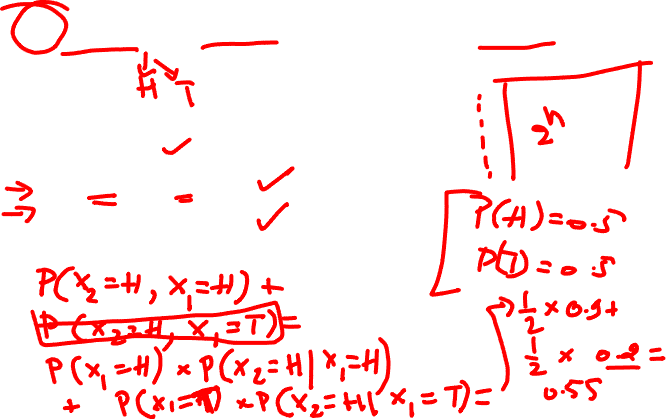 H T
2^n
P(H)=0.5
P(T)=0.5
P(x₂=H, x₁=H) +
P(x₂=H, x₁=T)=
P(x₁=H) × P(x₂=H|x₁=H)
+ P(x₁=T) × P(x₂=H|x₁=T)=
1/2 × 0.9+
1/2 × 0.2 =
0.55